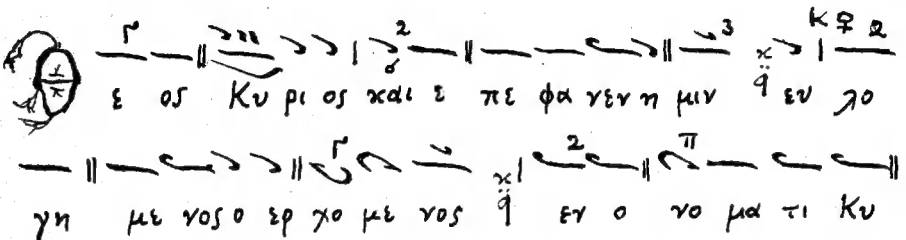 ε ος Κυ ρι ος και ε πε φα νεν η μιν ευ λο
γη με νος ο ερ χο με νος εν ο νο μα τι Κυ